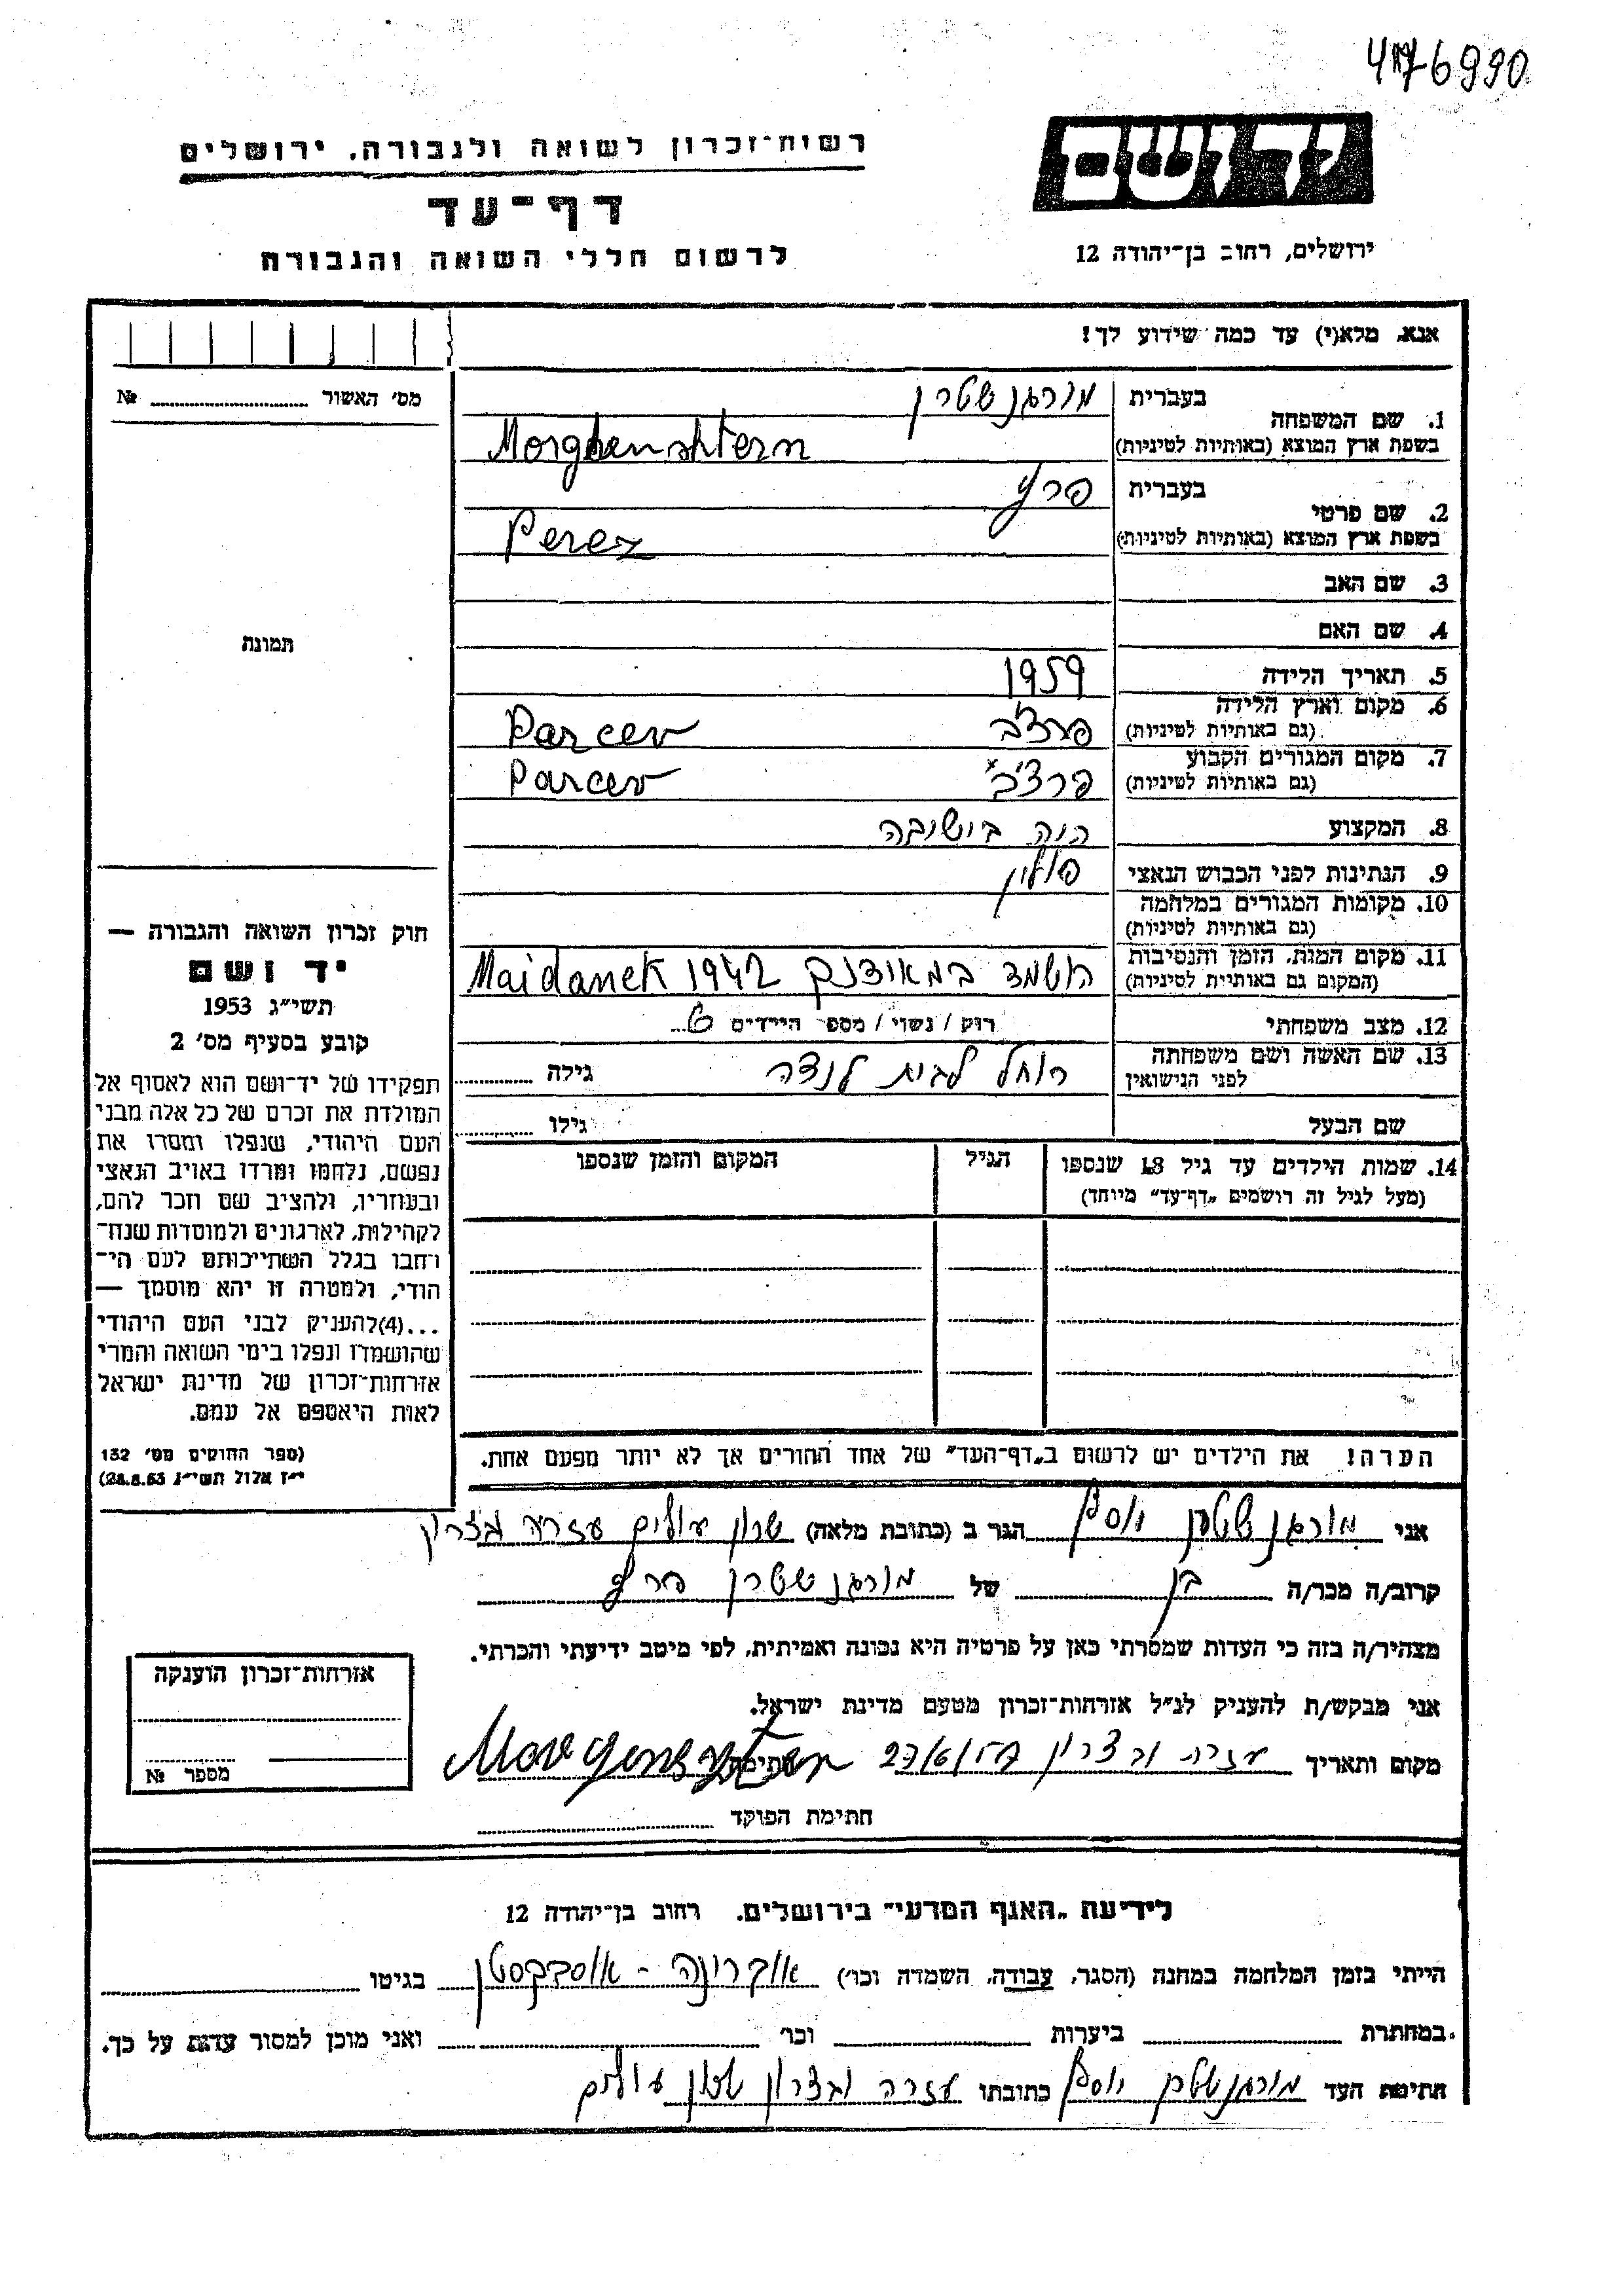 476990
יד ושם
רשות־זכרון לשואה ולגבורה, ירושלים
דף־עד
לרשום חללי השואה והגבורה
ירושלים, רחוב בן־יהודה 12
אנא, מלא(י) עד כמה שידוע לך!
מס׳ האשור № 
1. שם המשפחה
בעברית מורגנשטרן
בשפת ארץ המוצא (באותיות לטיניות) Morghenshtern
2. שם פרטי
בעברית פרץ
בשפת ארץ המוצא (באותיות לטיניות) Perez
3. שם האב
4. שם האם
תמונה
5. תאריך הלידה 1959
6. מקום וארץ הלידה
(גם באותיות לטיניות) פרצ'ב Parcev
7. מקום המגורים הקבוע
(גם באותיות לטיניות) פרצ'ב Parcev
8. המקצוע היה בישיבה
9. הנתינות לפני הכבוש הנאצי פולין
10. מקומות המגורים במלחמה
(גם באותיות לטיניות)
11. מקום המות, הזמן והנסיבות
(המקום גם באותיות לטיניות) הושמד במאידנק 1942 Maidanek
12. מצב משפחתי רוק / נשוי / מספר הילדים 6
13. שם האשה ושם משפחתה
לפני הנישואין רוחל לבית לנדה גילה
שם הבעל גילו
14. שמות הילדים עד גיל 18 שנספו הגיל המקום והזמן שנספו
(מעל לגיל זה רושמים „דף־עד״ מיוחד)
הערה! את הילדים יש לרשום ב„דף־העד״ של אחד ההורים אך לא יותר מפעם אחת.
חוק זכרון השואה והגבורה —
יד ושם
תשי״ג 1953
קובע בסעיף מס׳ 2
תפקידו של יד־ושם הוא לאסוף אל
המולדת את זכרם של כל אלה מבני
העם היהודי, שנפלו ומסרו את
נפשם, נלחמו ומרדו באויב הנאצי
ובעוזריו, ולהציב שם וזכר להם,
לקהילות, לארגונים ולמוסדות שנח־
רבו בגלל השתייכותם לעם הי־
הודי, ולמטרה זו יהא מוסמך —
...(4)להעניק לבני העם היהודי
שהושמדו ונפלו בימי השואה והמרי
אזרחות־זכרון של מדינת ישראל
לאות היאספם אל עמם.
(ספר החוקים מס׳ 132
י״ז אלול תשי״ג 28.8.53)
אני מורגנשטרן יוסף הגר ב (כתובת מלאה) שכון עולים עזריה וביצרון
קרוב/ה מכר/ה בן של מורגנשטרן פרץ
מצהיר/ה בזה כי העדות שמסרתי כאן על פרטיה היא נכונה ואמיתית, לפי מיטב ידיעתי והכרתי.
אני מבקש/ת להעניק לנ״ל אזרחות־זכרון מטעם מדינת ישראל.
מקום ותאריך חתימה Morgensztern
חתימת הפוקד
אזרחות־זכרון הוענקה
מספר №
לידיעת „האגף המדעי״ בירושלים, רחוב בן־יהודה 12
הייתי בזמן המלחמה במחנה (הסגר, עבודה, השמדה וכו׳) בגיטו
במחתרת ביערות וכו׳ ואני מוכן למסור עדות על כך.
חתימת העד מורגנשטרן יוסף כתובתו שכון עולים